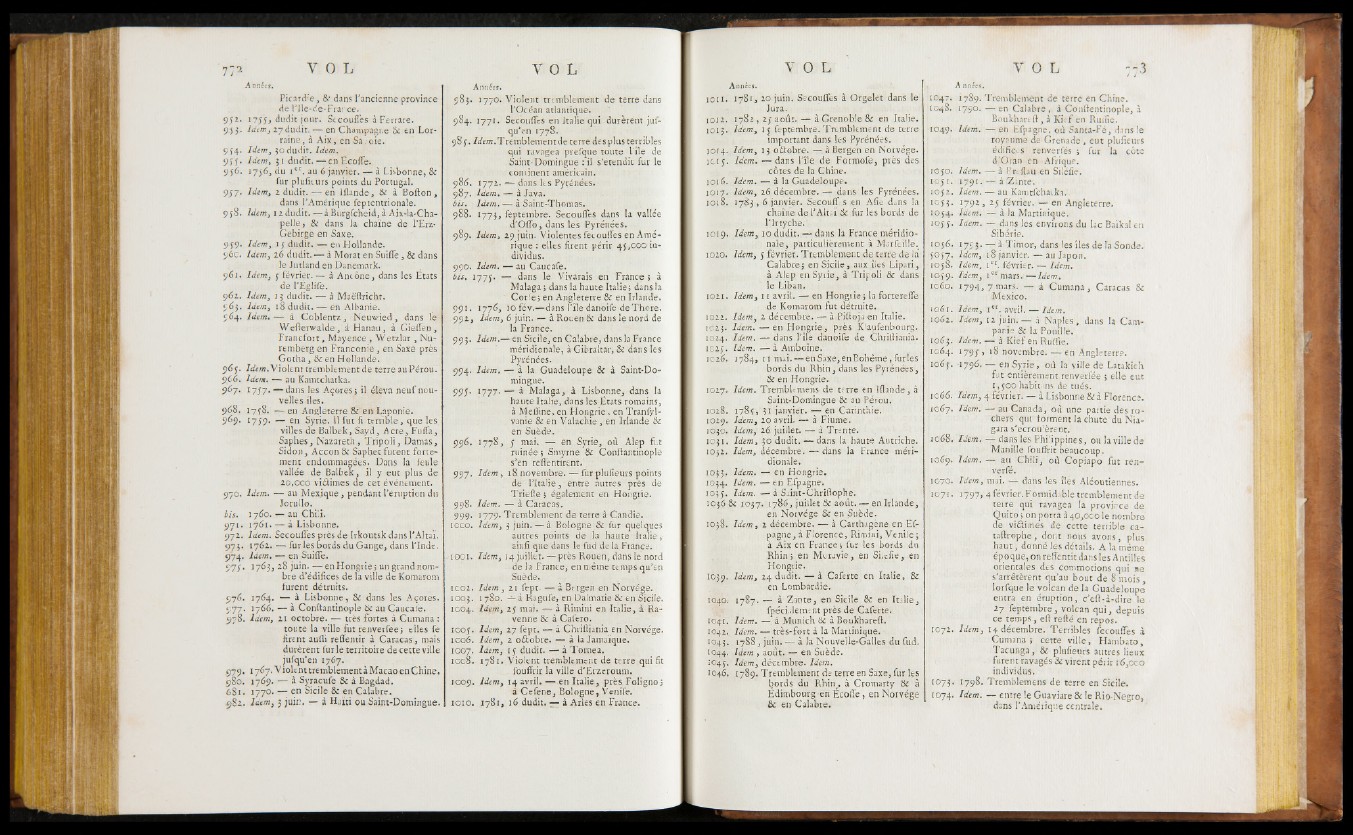 772 V O L
Années.
Picardie, & dans l'ancienne province
de l'Ile-de-France.
952. 1755, dudit jour. Secouſſes à Ferrare.
953. Idem, 27 dudit. — en Champagne & en Lor-
raine, à Aix, en Savoie.
954. Idem, 30 dudit. Idem.
955. Idem, 31 dudit. — en Ecoſſe.
956. 1756, du 1er. au 6 janvier. — à Lisbonne, &
ſur pluſieurs points du Portugal.
957. Idem, 2 dudit. — en Iſlande, & à Boſton,
dans l'Amérique ſeptentrionale.
958. Idem, 12 dudit. — à Burgſcheid, à Aix-la-Cha-
pelle, & dans la chaîne de l'Erz-
Gebirge en Saxe.
959. Idem, 15 dudit. — en Hollande.
960. Idem, 26 dudit. — à Morat en Suiſſe, & dans
le Jutland en Danemark.
961. Idem, 5 février. — à Ancône, dans les Etats
de l'Egliſe.
962. Idem, 13 dudit. — à Maëſtricht.
963. Idem, 18 dudit. — en Albanie.
964. Idem. — à Coblentz, Neuwied, dans le
Weſterwalde, à Hanau, à Gieſſen,
Francfort, Mayence, Wetzlar, Nu-
remberg en Franconie, en Saxe près
Gotha, & en Hollande.
965. Idem. Violent tremblement de terre au Pérou.
966. Idem. — au Kamtchatka.
967. 1757. — dans les Açores; il éleva neuf nou-
velles îles.
968. 1758. — en Angleterre & en Laponie.
969. 1759. — en Syrie. Il fut ſi terrible, que les
villes de Balbek, Sayd, Acre, Fuſſa,
Saphes, Nazareth, Tripoli, Damas,
Sidon, Accon & Saphet furent forte-
ment endommagées. Dans la ſeule
vallée de Balbek, il y eut plus de
20,000 victimes de cet événement.
970. Idem. — au Mexique, pendant l'éruption du
Jorullo.
bis. 1760. — au Chili.
971. 1761. — à Lisbonne.
972. Idem. Secouſſes près de Irkoutsk dans l'Altaï.
973. 1762. — ſur les bords du Gange, dans l'Inde.
974. Idem. — en Suiſſe.
975. 1763, 28 juin. — en Hongrie; un grand nom-
bre d'édifices de la ville de Komarom
furent détruits.
976. 1764. — à Lisbonne, & dans les Açores.
977. 1766. — à Conſtantinople & au Caucaſe.
978. Idem, 21 octobre. — très fortes à Cumana:
toute la ville fut renverſée; elles ſe
firent auſſi reſſentir à Caracas, mais
durèrent ſur le territoire de cette ville
juſqu'en 1767.
979. 1767. Violent tremblement à Macao en Chine.
980. 1769. — à Syracuſe & à Bagdad.
981. 1770. — en Sicile & en Calabre.
982. Idem, 3 juin. — à Haïti ou Saint-Domingue.
V O L
Années.
983. 1770. Violent tremblement de terre dans
l'Océan atlantique.
984. 1771. Secouſſes en Italie qui durèrent juſ-
qu'en 1778.
985. Idem. Tremblement de terre des plus terribles
qui ravagea preſque toute l'île de
Saint-Domingue: il s'étendit ſur le
continent américain.
986. 1772. — dans les Pyrénées.
987. Idem. — à Java.
bis. Idem. — à Saint-Thomas.
988. 1773, ſeptembre. Secouſſes dans la vallée
d'Oſſo, dans les Pyrénées.
989. Idem, 29 juin. Violentes ſecouſſes en Amé-
rique: elles firent périr 45,000 in-
dividus.
990. Idem. — au Caucaſe.
bis. 1775. — dans le Vivarais en France; à
Malaga; dans la haute Italie; dans la
Corſe; en Angleterre & en Irlande.
991. 1776, 10 fév. — dans l'île danoiſe de Thore.
992, Idem, 6 juin. — à Rouen & dans le nord de
la France.
993. Idem. — en Sicile, en Calabre, dans la France
méridionale, à Gibraltar, & dans les
Pyrénées.
994. Idem. — à la Guadeloupe & à Saint-Do-
mingue.
995. 1777. — à Malaga, à Lisbonne, dans la
haute Italie, dans les Etats romains,
à Meſſine, en Hongrie, en Tranſyl-
vanie & en Valachie, en Irlande &
en Suède.
996. 1778, 5 mai. — en Syrie, où Alep fut
ruinée; Smyrne & Conſtantinople
s'en reſſentirent.
997. Idem, 18 novembre. — ſur pluſieurs points
de l'Italie, entre autres près de
Trieſte; également en Hongrie.
998. Idem. — à Caracas.
999. 1779. Tremblement de terre à Candie.
1000. Idem, 3 juin. — à Bologne & ſur quelques
autres points de la haute Italie,
ainſi que dans le ſud de la France.
1001. Idem, 14 juillet. — près Rouen, dans le nord
de la France, en même temps qu'en
Suède.
1002. Idem, 21 ſept. — à Bergen en Norvége.
1003. 1780. — à Raguſe, en Dalmatie & en Sicile.
1004. Idem, 25 mai. — à Rimini en Italie, à Ra-
venne & à Caſero.
1005. Idem, 27 ſept. — à Chriſtiania en Norvége.
1006. Idem, 2 octobre. — à la Jamaïque.
1007. Idem, 15 dudit. — à Tornea.
1008. 1781. Violent tremblement de terre qui fit
ſouffrir la ville d'Erzeroum.
1009. Idem, 14 avril. — en Italie, près Foligno;
à Ceſene, Bologne, Veniſe.
1010. 1781, 16 dudit. — à Arles en France.
V O L
Années.
1011. 1781, 20 juin. Secouſſes à Orgelet dans le
Jura.
1012. 1782, 25 août. — à Grenoble & en Italie.
1013. Idem, 15 ſeptembre. Tremblement de terre
important dans les Pyrénées.
1014. Idem, 13 octobre. — à Bergen en Norvége.
1015. Idem. — dans l'île de Formoſe, près des
côtes de la Chine.
1016. Idem. — à la Guadeloupe.
1017. Idem, 26 décembre. — dans les Pyrénées.
1018. 1783, 6 janvier. Secouſſes en Aſie dans la
chaîne de l'Altaï & ſur les bords de
l'Irtyche.
1019. Idem, 10 dudit. — dans la France méridio-
nale, particulièrement à Marſeille.
1020. Idem, 5 février. Tremblement de terre de la
Calabre; en Sicile, aux îles Lipari,
à Alep en Syrie, à Tripoli & dans
le Liban.
1021. Idem, 11 avril. — en Hongrie; la fortereſſe
de Komarom fut détruite.
1022. Idem, 2 décembre. — à Piſtoja en Italie.
1023. Idem. — en Hongrie, près Klauſenbourg.
1024. Idem. — dans l'île danoiſe de Chriſtiania.
1025. Idem. — à Amboine.
1026. 1784, 11 mai. — en Saxe, en Bohème, ſur les
bords du Rhin, dans les Pyrénées,
& en Hongrie.
1027. Idem. Tremblemens de terre en Iſlande, à
Saint-Domingue & au Pérou.
1028. 1785, 31 janvier. — en Carinthie.
1029. Idem, 20 avril. — à Fiume.
1030. Idem, 26 juillet. — à Trente.
1031. Idem, 30 dudit. — dans la haute Autriche.
1032. Idem, décembre. — dans la France méri-
dionale.
1033. Idem. — en Hongrie.
1034. Idem. — en Eſpagne.
1035. Idem. — à Saint-Chriſtophe.
1036 & 1037. 1786, juillet & août. — en Irlande,
en Norvége & en Suède.
1038. Idem, 2 décembre. — à Carthagene en Eſ-
pagne, à Florence, Rimini, Veniſe;
à Aix en France; ſur les bords du
Rhin; en Moravie, en Siléſie, en
Hongrie.
1039. Idem, 24 dudit. — à Caſerte en Italie, &
en Lombardie.
1040. 1787. — à Zante, en Sicile & en Italie,
ſpécialement près de Caſerte.
1041. Idem. — à Munich & à Boukhareſt.
1042. Idem. — très-fort à la Martinique.
1043. 1788, juin. — à la Nouvelle-Galles du ſud.
1044. Idem, août. — en Suède.
1045. Idem, décembre. Idem.
1046. 1789. Tremblement de terre en Saxe, ſur les
bords du Rhin, à Cromarty & à
Edimbourg en Ecoſſe, en Norvége
& en Calabre.
V O L 773
Années.
1047. 1789. Tremblement de terre en Chine.
1048. 1790. — en Calabre, à Conſtantinople, à
Boukhareſt, à Kief en Ruſſie.
1049. Idem. — en Eſpagne, où Santa-Fé, dans le
royaume de Grenade, eut pluſieurs
édifices renverſés; ſur la côte
d'Oran en Afrique.
1050. Idem. — à Breſlau en Siléſie.
1051. 1791. — à Zante.
1052. Idem. — au Kamtſchatka.
1053. 1792, 25 février. — en Angleterre.
1054. Idem. — à la Martinique.
1055. Idem. — dans les environs du lac Baïkal en
Sibérie.
1056. 1793. — à Timor, dans les îles de la Sonde.
1057. Idem, 18 janvier. — au Japon.
1058. Idem, 1er. février. — Idem.
1059. Idem, 1er mars. — Idem.
1060. 1794, 7 mars. — à Cumana, Caracas &
Mexico.
1061. Idem, 1er. avril. — Idem.
1062. Idem, 12 juin. — à Naples, dans la Cam-
panie & la Pouille.
1063. Idem. — à Kief en Ruſſie.
1064. 1795, 18 novembre. — en Angleterre.
1065. 1796. — en Syrie, où la ville de Latakieh
fut entièrement renverſée; elle eut
1,500 habitans de tués.
1066. Idem, 4 février. — à Lisbonne & à Florence.
1067. Idem. — au Canada, où une partie des ro-
chers qui forment la chute du Nia-
gara s'écroulèrent.
1068. Idem. — dans les Philippines, où la ville de
Manille ſouffrit beaucoup.
1069. Idem. — au Chili, où Copiapo fut ren-
verſé.
1070. Idem, mai. — dans les îles Aléoutiennes.
1071. 1797, 4 février. Formidable tremblement de
terre qui ravagea la province de
Quito; on porta à 40,000 le nombre
de victimes de cette terrible ca-
taſtrophe, dont nous avons, plus
haut, donné les détails. A la même
époque, on reſſentit dans les Antilles
orientales des commotions qui ne
s'arrêtèrent qu'au bout de 8 mois,
lorſque le volcan de la Guadeloupe
entra en éruption, c'eſt-à-dire le
27 ſeptembre, volcan qui, depuis
ce temps, eſt reſté en repos.
1072. Idem, 14 décembre. Terribles ſecouſſes à
Cumana; cette ville, Hambato,
Tacunga, & pluſieurs autres lieux
furent ravagés & virent périr 16,000
individus.
1073. 1798. Tremblemens de terre en Sicile.
1074. Idem. — entre le Guaviare & le Rio-Negro,
dans l'Amérique centrale.